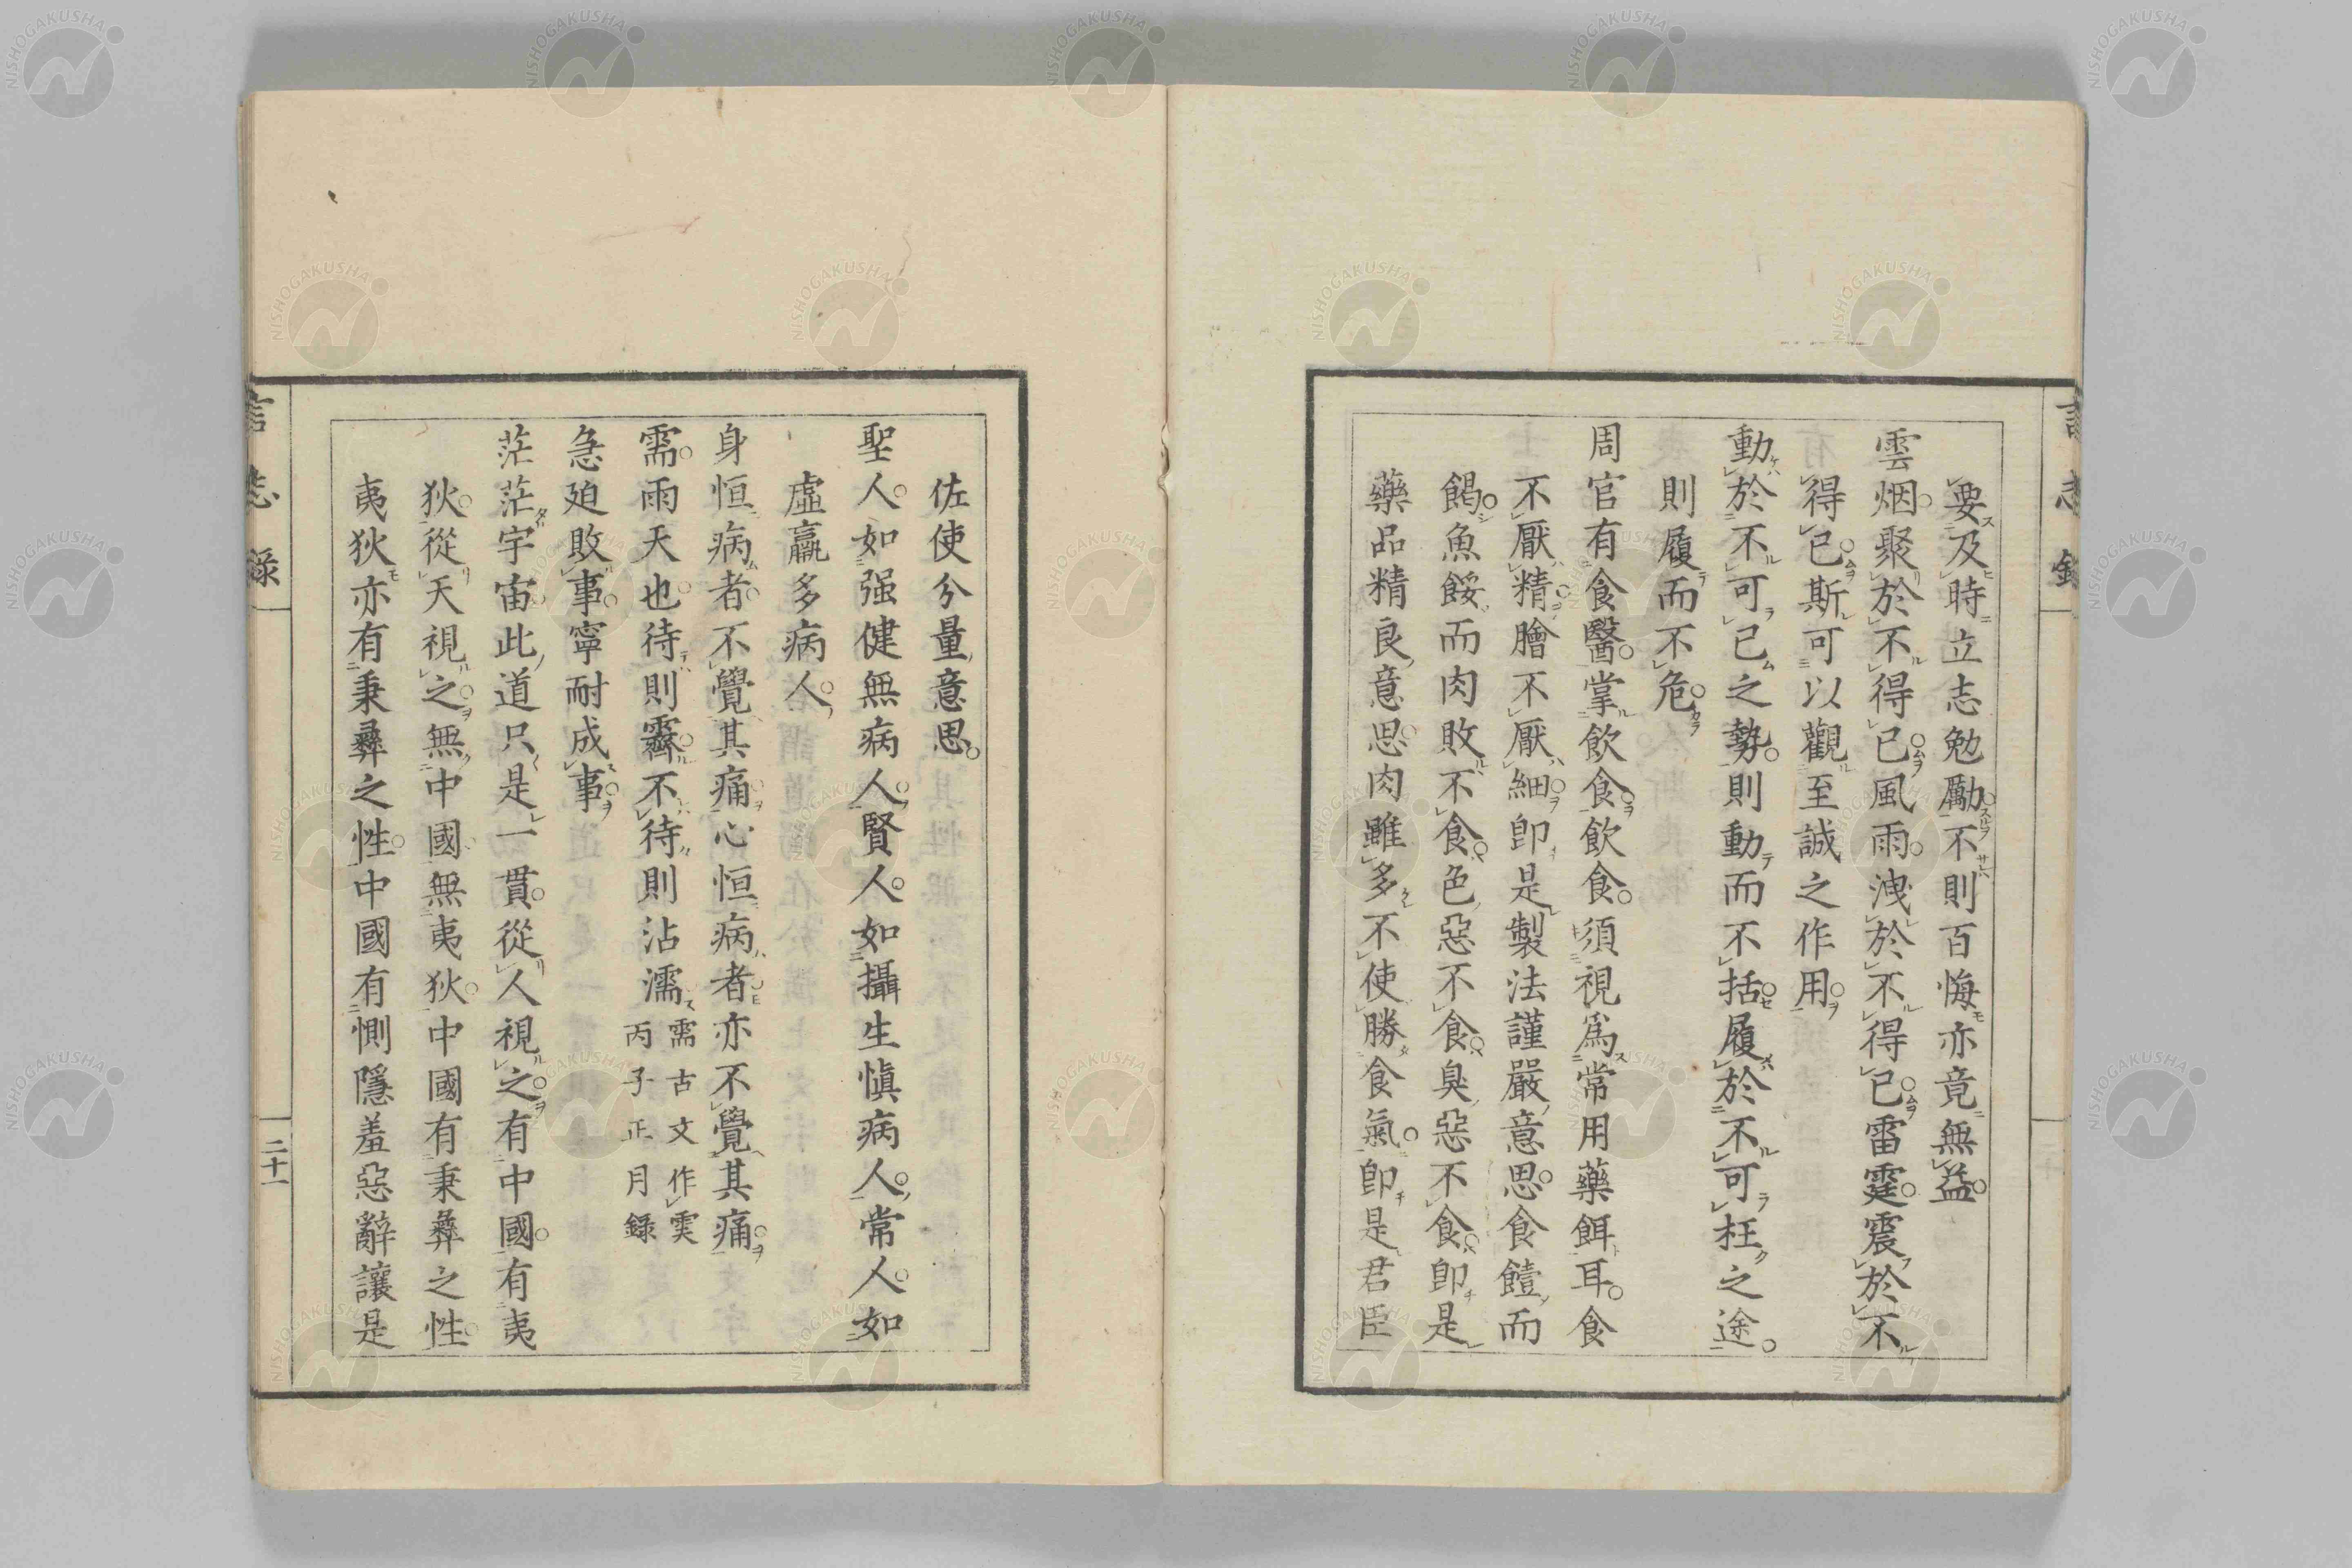 要及時立志勉勵不則百悔亦竟無益
雲烟聚於不得已風雨洩於不得已雷霆震於不
得已斯可以觀至誠之作用
動於不可已之勢則動而不括履於不可枉之途
則履而不危
周官有食醫掌飲食飲食須視爲常用藥餌耳食
不厭精膾不厭細卽是製法謹嚴意思食饐而
餲魚餒而肉敗不食色惡不食臭惡不食卽是
藥品精良意思肉雖多不使勝食氣卽是君臣
佐使分量意思
聖人如强健無病人賢人如攝生愼病人常人如
虛羸多病人
身恒病者不覺其痛心恒病者亦不覺其痛
需雨天也待則霽不待則沾濡 需古文作𩁹 丙子正月録
急廹敗事寧耐成事
茫茫宇宙此道只是一貫從人視之有中國有夷
狄從天視之無中國無夷狄中國有秉彝之性
夷狄亦有秉彝之性中國有惻隱羞惡辭讓是
言志錄
二十一
NISHOGAKUSHA